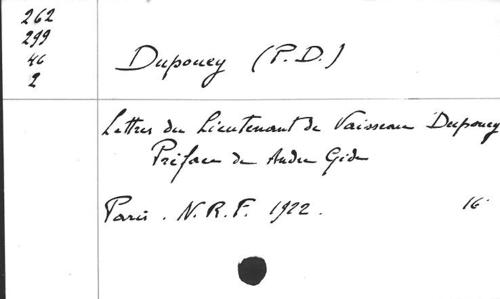 262
299
46
2
Dupouey (P.D.)
Lettres du Lieutenant de Vaisseau Dupouey
Préface de André Gide
Paris. N.R.F. 1922. 16°